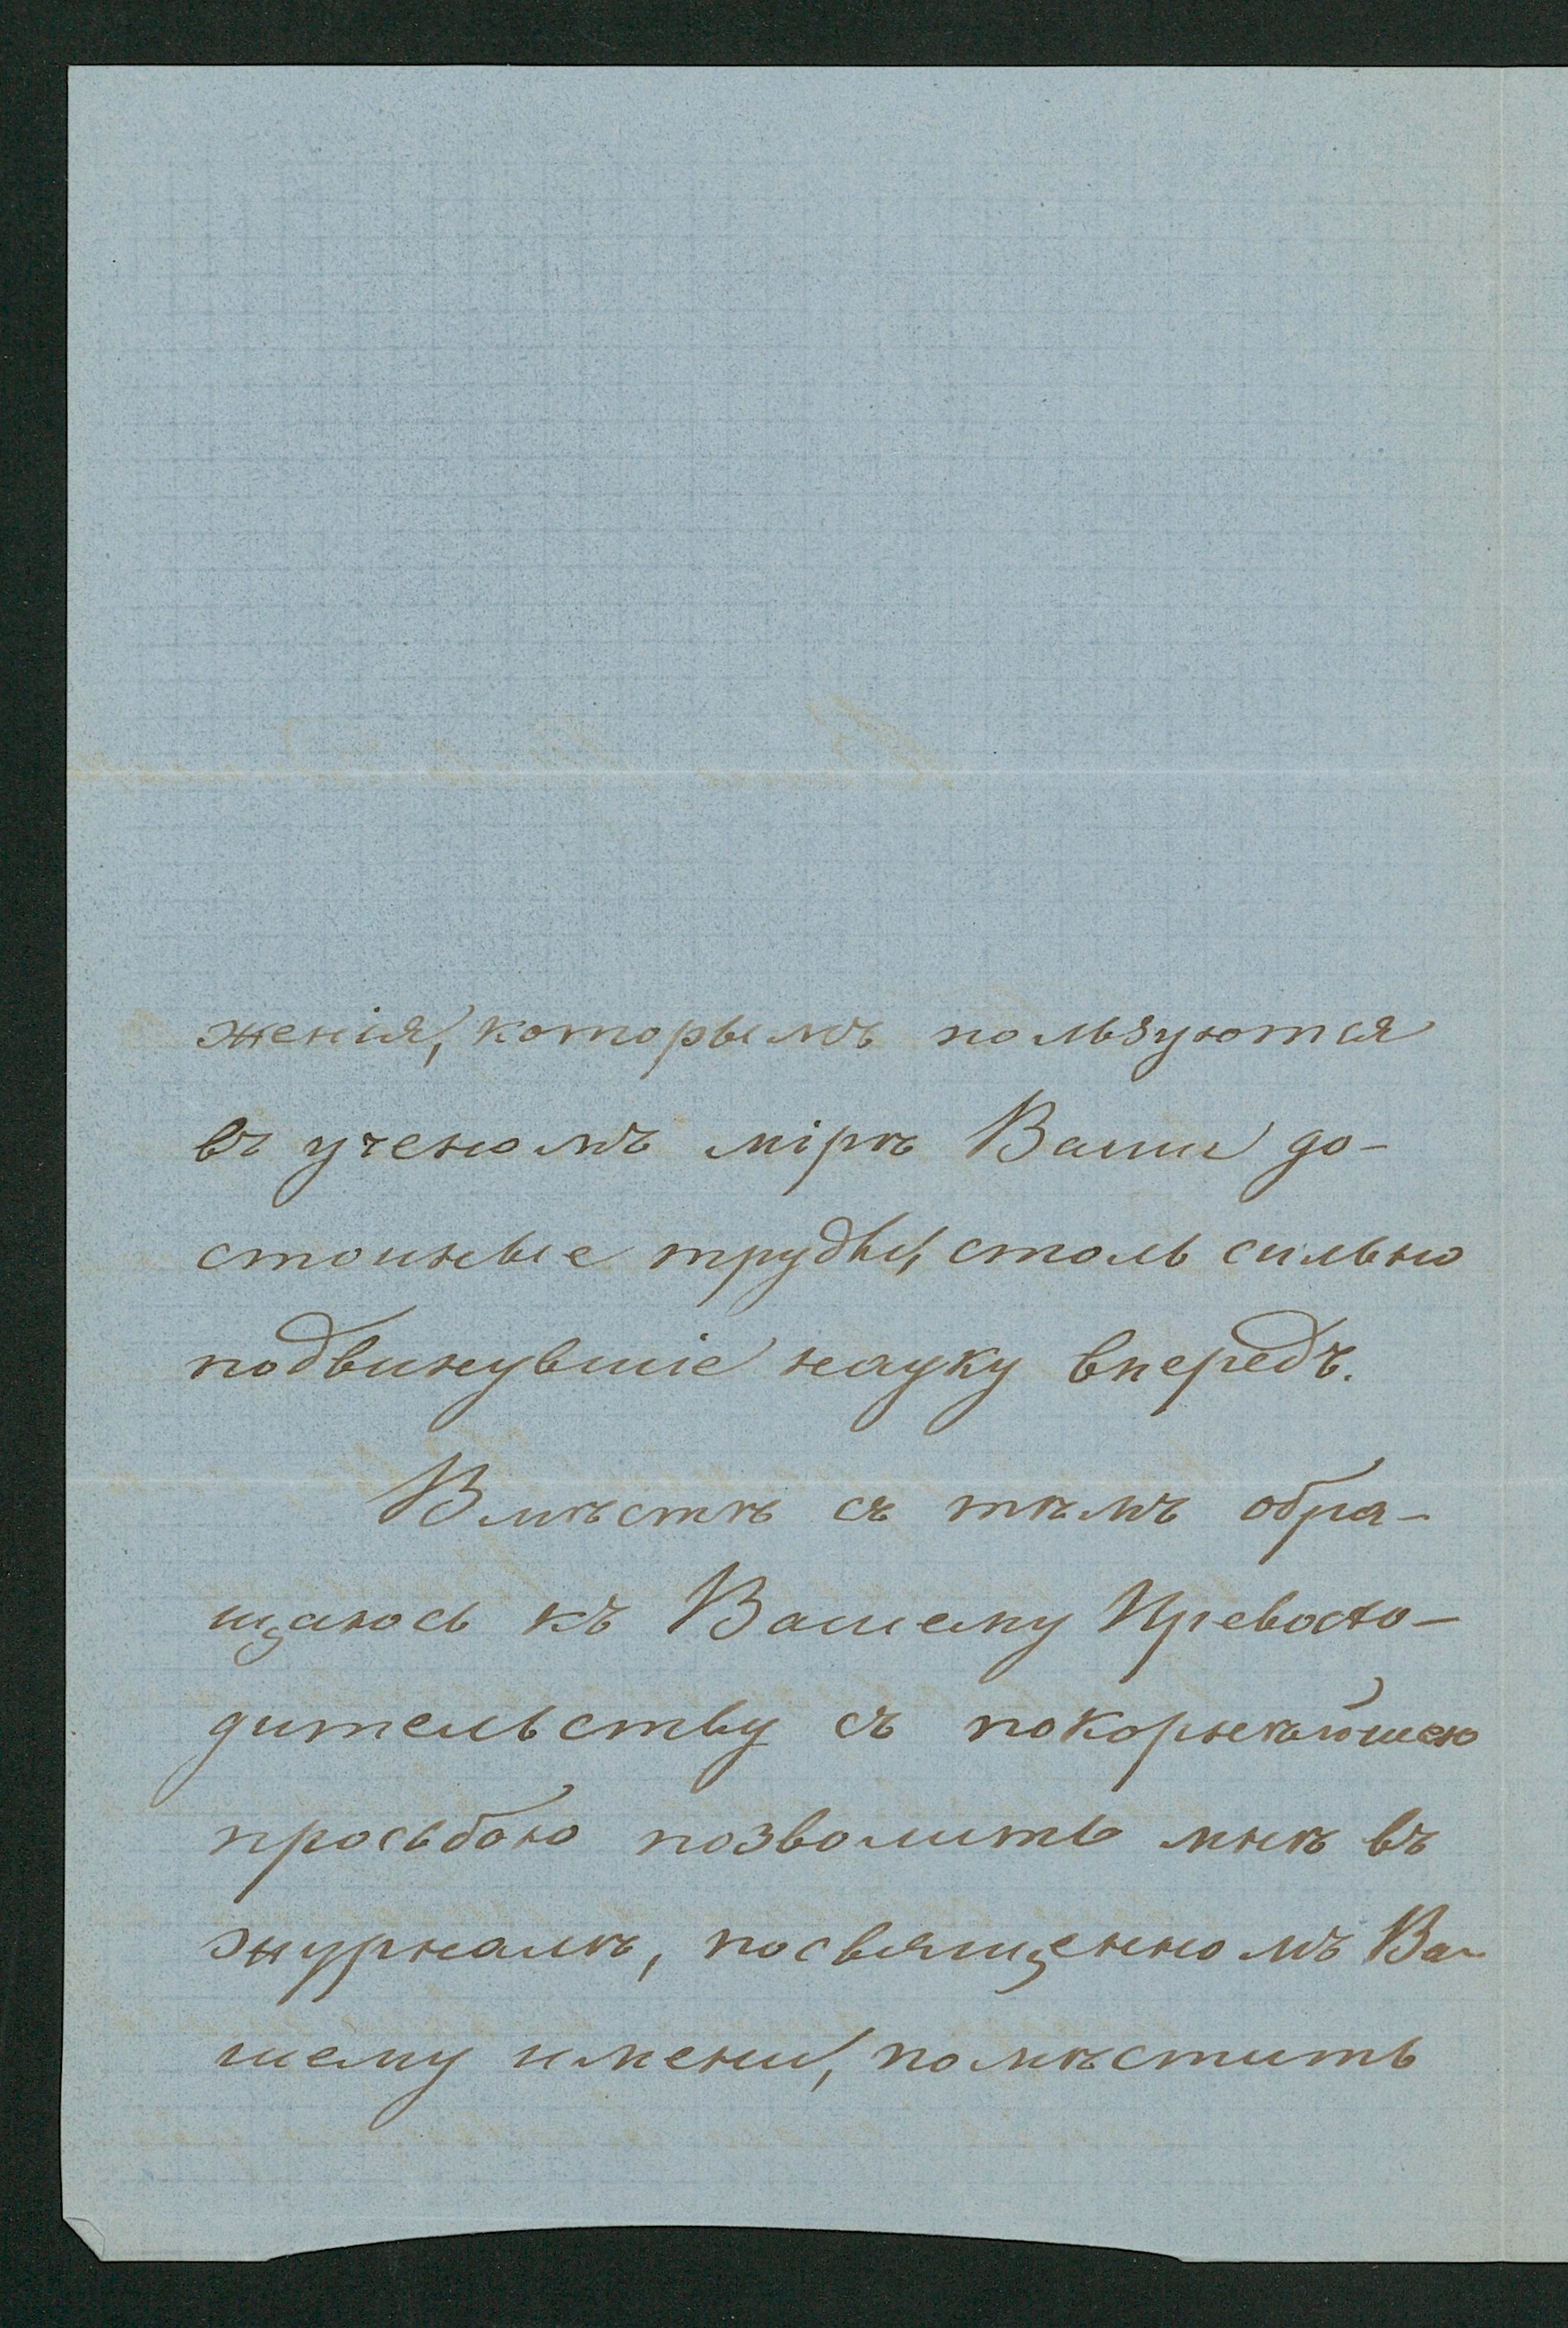 женія, которымъ пользуются
въ ученомъ мірѣ Ваши до-
стоиные труды, столь сильно
подвинувшіе науку впередъ.
Вмѣстѣ съ тѣмъ обра-
щаюсь къ Вашему Превосхо-
дительству съ покорнѣйшею
просьбою позволить мнѣ въ
журналѣ, посвященномъ Ва-
шему имени, помѣстить